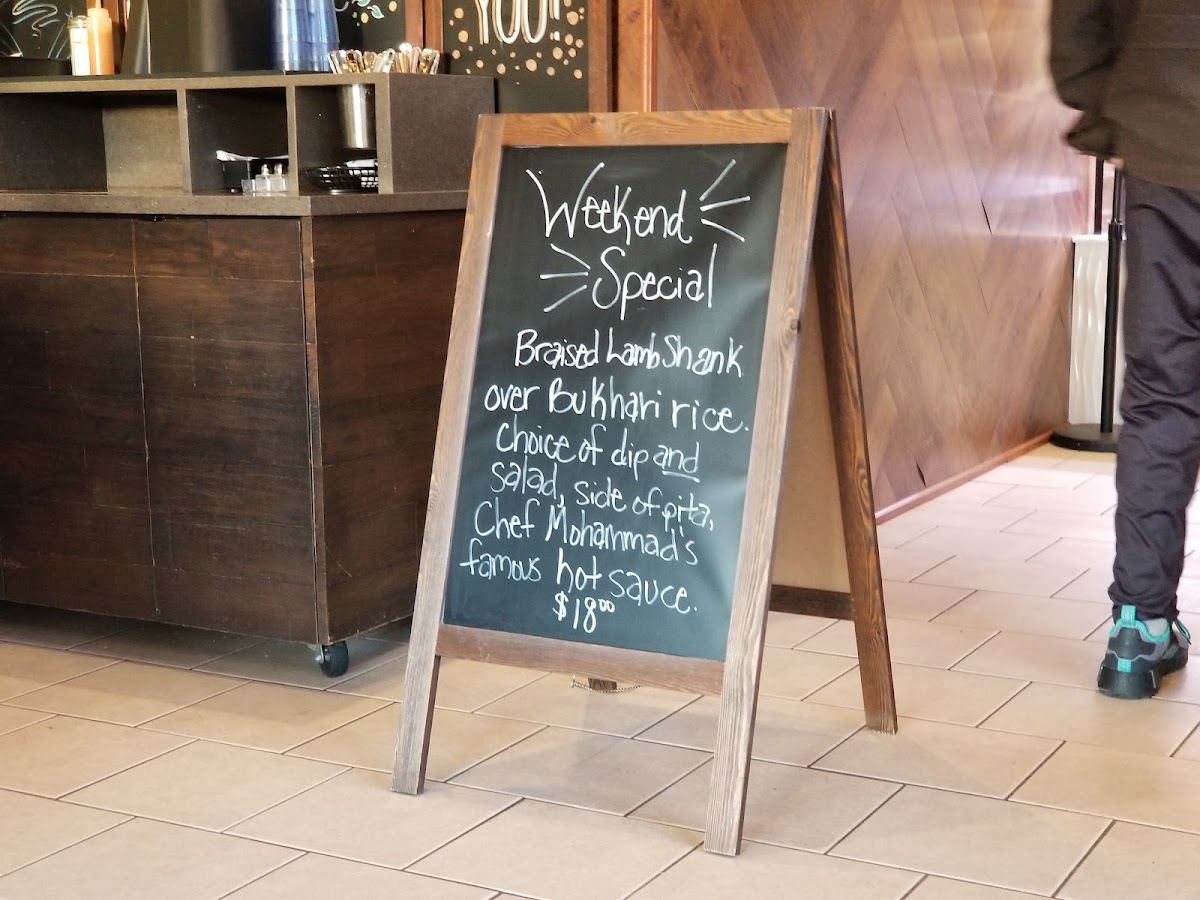 YOU!
Weekend
Special
Braised Lamb Shank
over Bukhari rice.
Choice of dip and
salad, side of pita,
Chef Mohammad's
famous hot sauce.
$18⁰⁰